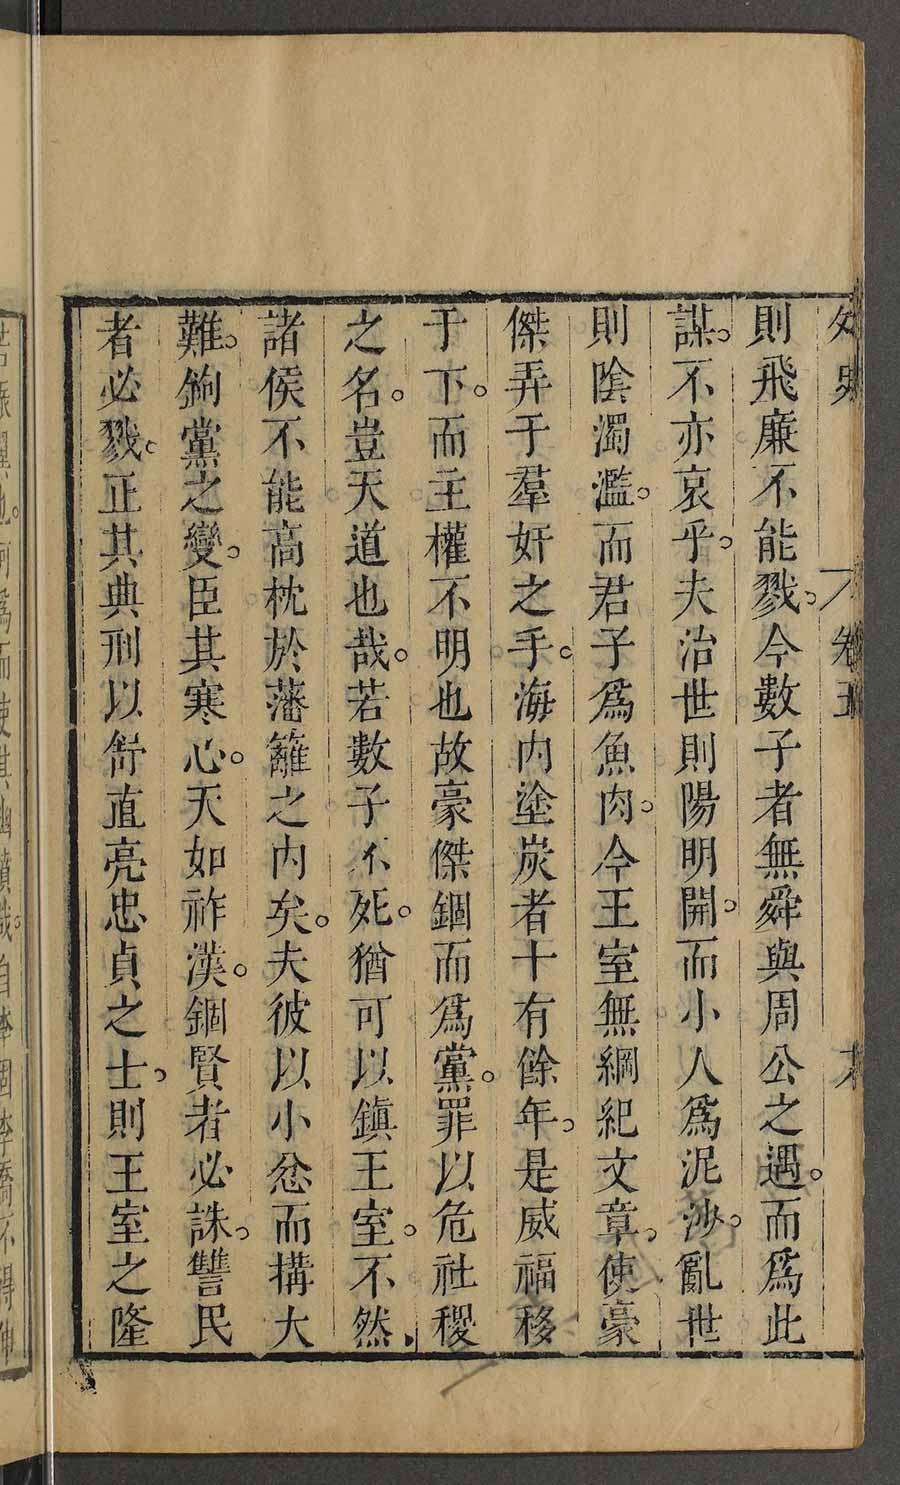 外史 卷五
則飛廉不能戮。今數子者無舜與周公之遇。而爲此
謀。不亦哀乎。夫治世則陽明開。而小人爲泥沙。亂世
則陰濁濫。而君子爲魚肉。今王室無綱紀文章。使豪
傑弄于羣奸之手。海内塗炭者十有餘年。是威福移
于下。而主權不明也故豪傑錮而爲黨。罪以危社稷
之名。豈天道也哉。若數子不死。猶可以鎮王室。不然
諸侯不能高枕於藩籬之内矣。夫彼以小忿而搆大
難。鉤黨之變。臣其寒心。天如祚漢。錮賢者必誅。讐民
者必戮。正其典刑以舒直亮忠貞之士。則王室之隆